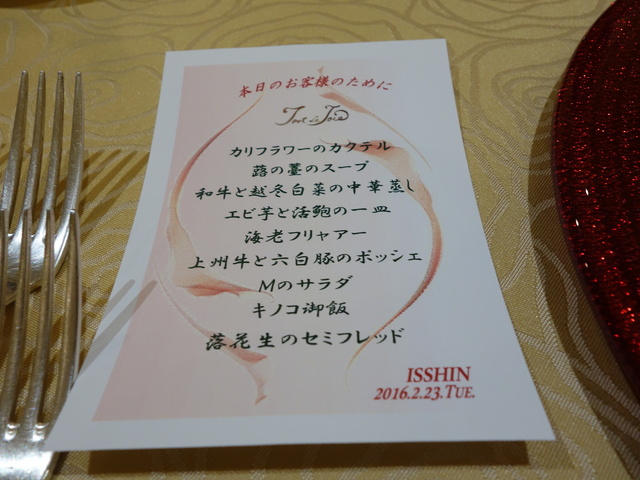 本日のお客様のために
カリフラワーのカクテル
蕗の薹のスープ
和牛と越冬白菜の中華蒸し
エビ芋と活鮑の一皿
海老フリャアー
上州牛と六白豚のポッシェ
Mのサラダ
キノコ御飯
落花生のセミフレッド
ISSHIN
2016.2.23.TUE.